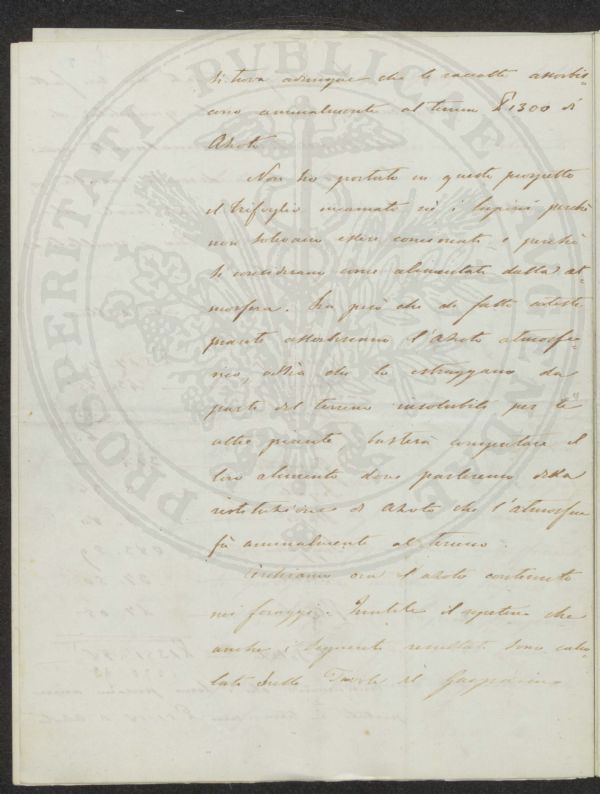 si trova adunque che le raccolte assorbis=
cono annualmente al terreno £ 1300 di
Azoto
Non ho portato in questo progetto
il trifoglio incarnato nè i lupini perchè
non solevano essere concimati e perchè
si considerano come alimentati dalla at=
mosfera. Sia però che di fatto coteste
piante assorbiscano l'Azoto atmosfe=
rico, ossia che lo estraggano da
parti del terreno insolubili per le
altre piante basterà computare il
loro alimento dove parleremo della
restituzione di Azoto che l'atmosfera
fà annualmente al terreno.
Vediamo ora l'azoto contenuto
nei foraggi. Inutile il ripetere che
anche i seguenti resultati sono calco=
lati sulle Tavole di Gasparin
PROSPERITATI PUBLICAE AUGENDAE